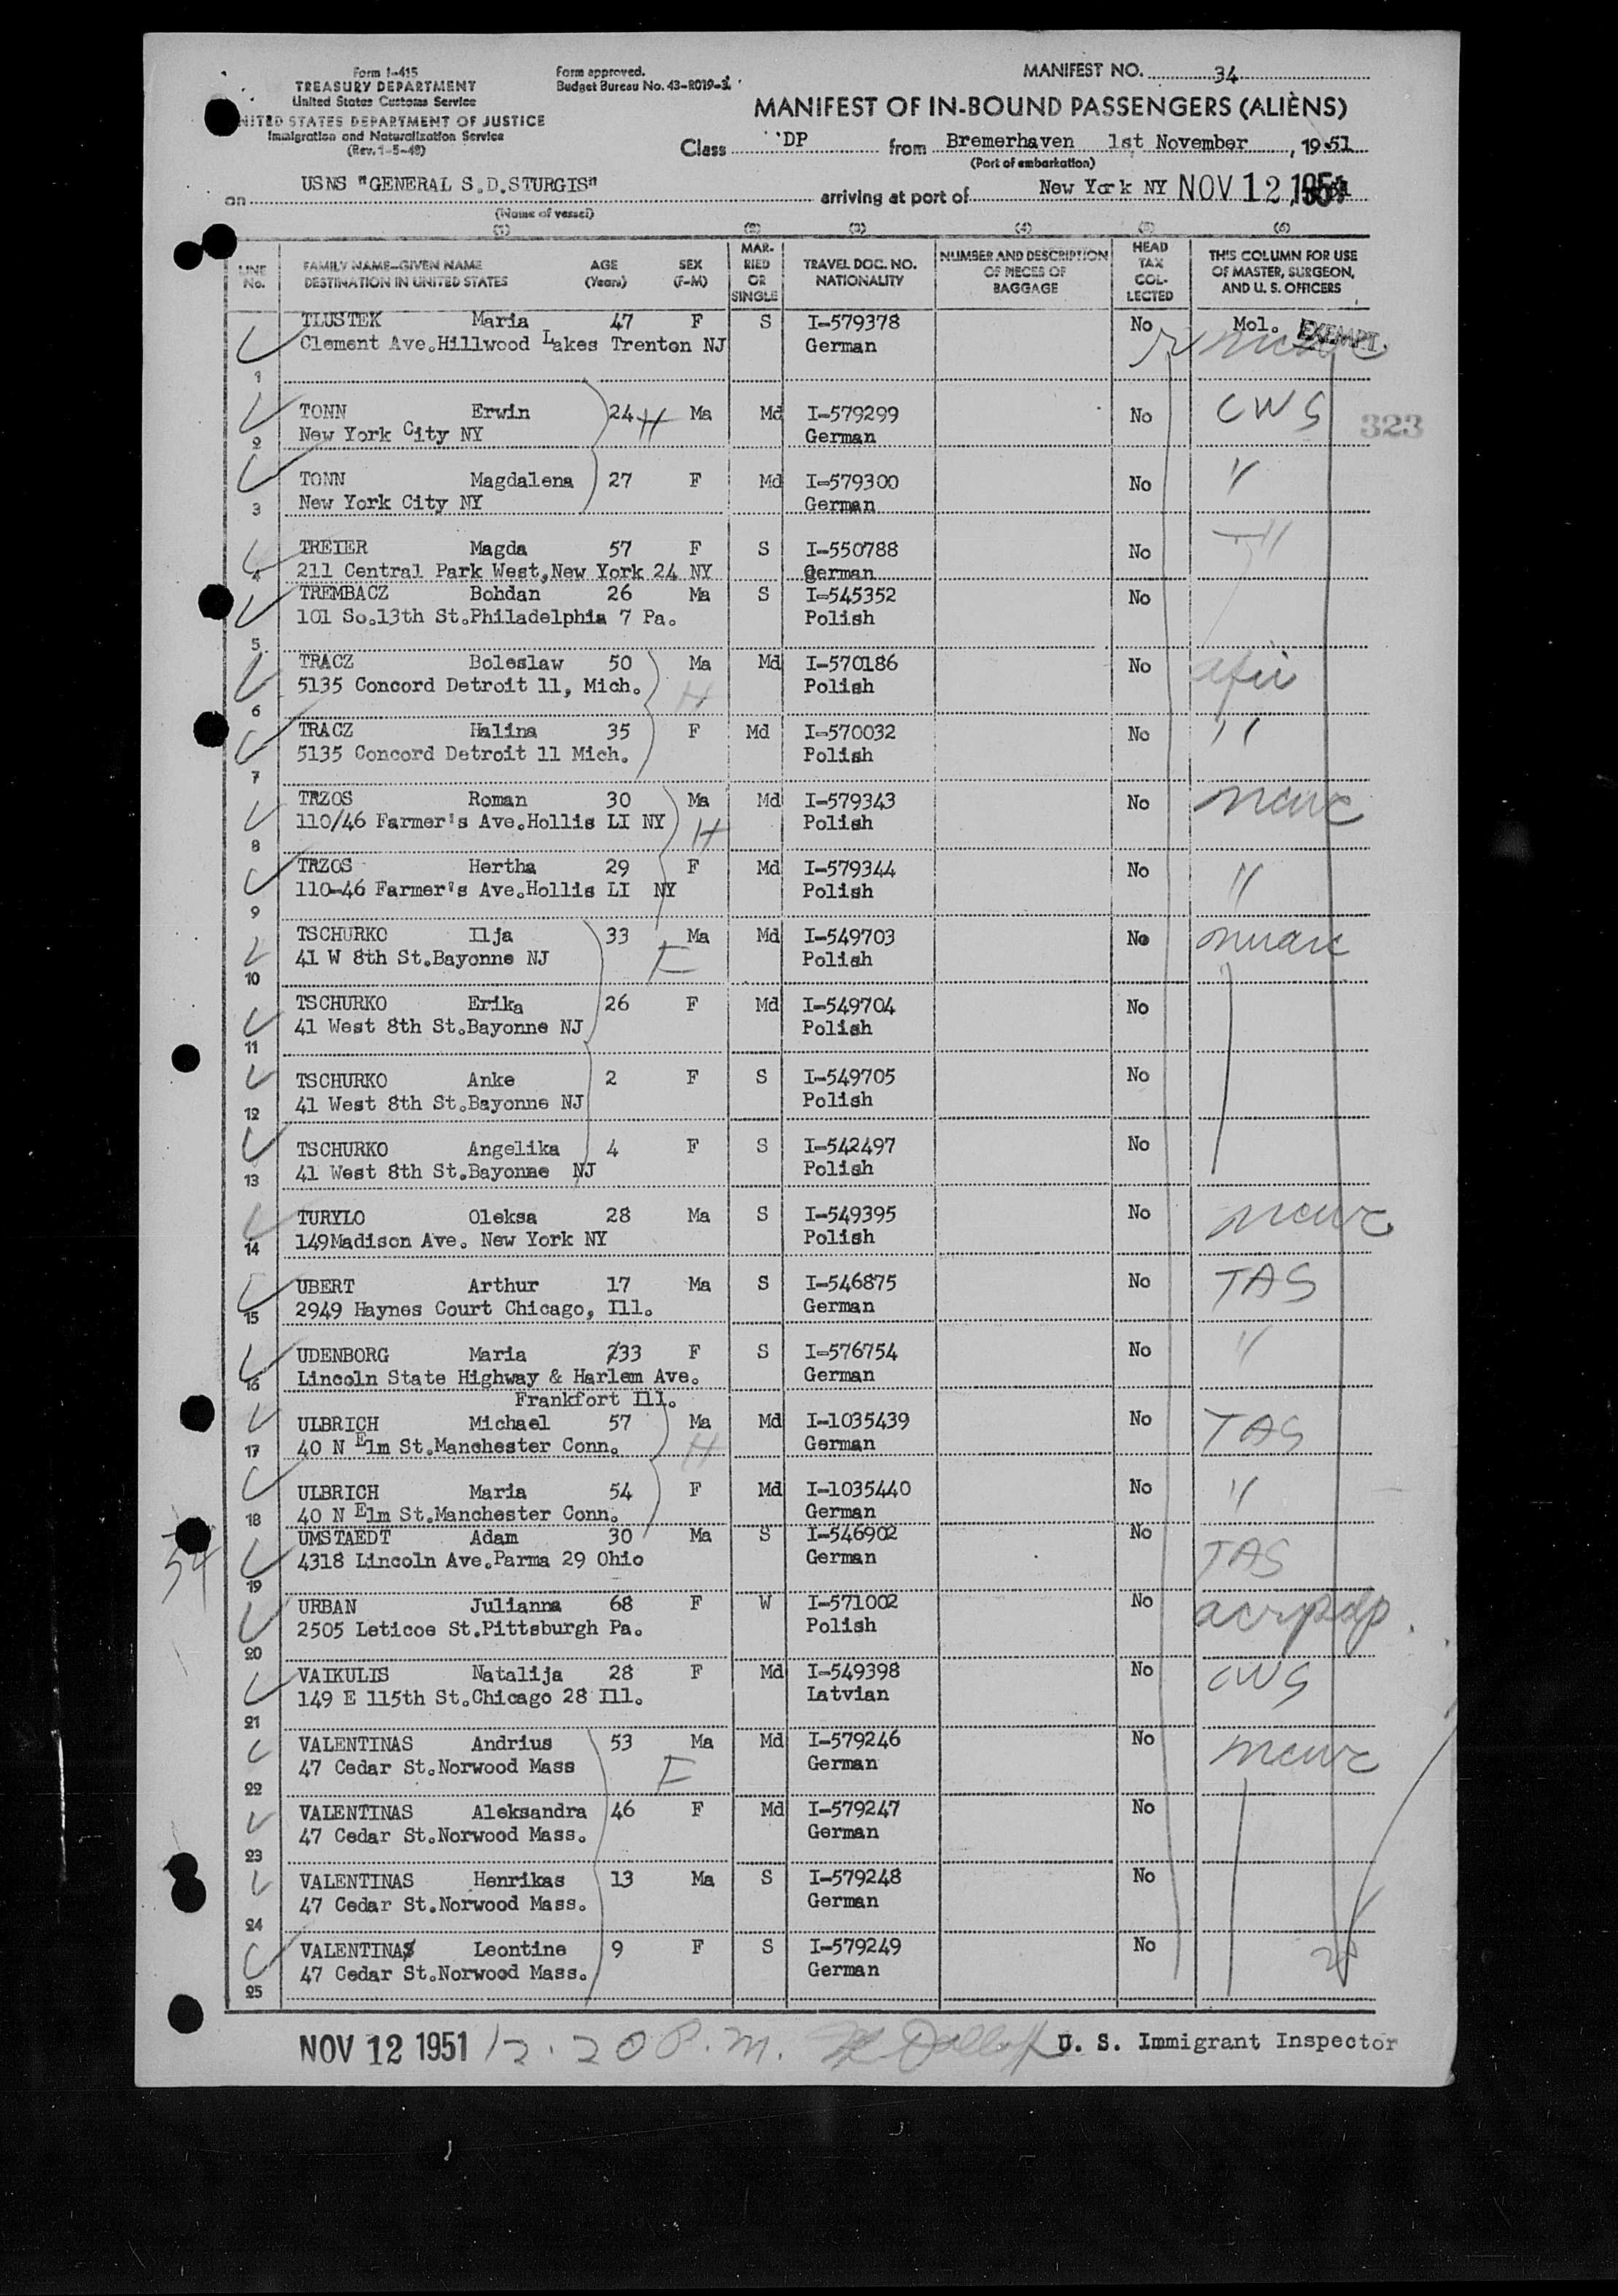 Form I-415
TREASURY DEPARTMENT
United States Customs Service
UNITED STATES DEPARTMENT OF JUSTICE
Immigration and Naturalization Service
(Rev. 1-5-49)
Form approved.
Budget Bureau No. 43-R019-3.
MANIFEST NO. 34
MANIFEST OF IN-BOUND PASSENGERS (ALIENS)
Class DP from Bremerhaven 1st November, 1951
(Port of embarkation)
on USNS "GENERAL S.D.STURGIS" arriving at port of New York NY NOV 12 1951
(Name of vessel)
(1) (2) (3) (4) (5) (6)
LINE No. FAMILY NAME—GIVEN NAME DESTINATION IN UNITED STATES AGE (Years) SEX (F-M) MARRIED OR SINGLE TRAVEL DOC. NO. NATIONALITY NUMBER AND DESCRIPTION OF PIECES OF BAGGAGE HEAD TAX COLLECTED THIS COLUMN FOR USE OF MASTER, SURGEON, AND U. S. OFFICERS
TLUSTEK Maria 47 F S I-579378 No Mol. EXEMPT.
Clement Ave.Hillwood Lakes Trenton NJ German
1
TONN Erwin 24 H Ma Md I-579299 No CWS
323
2 New York City NY German
TONN Magdalena 27 F Md I-579300 No "
3 New York City NY German
TREIER Magda 57 F S I-550788 No "
4 211 Central Park West,New York 24 NY German
TREMBACZ Bohdan 26 Ma S I-545352 No
101 So.13th St.Philadelphia 7 Pa. Polish
5
TRACZ Boleslaw 50 Ma Md I-570186 No
5135 Concord Detroit 11, Mich. H Polish
6
TRACZ Halina 35 F Md I-570032 No "
5135 Concord Detroit 11 Mich. Polish
7
TRZOS Roman 30 Ma Md I-579343 No ncwc
110/46 Farmer's Ave.Hollis LI NY H Polish
8
TRZOS Hertha 29 F Md I-579344 No "
110-46 Farmer's Ave.Hollis LI NY Polish
9
TSCHURKO Ilja 33 Ma Md I-549703 No
41 W 8th St.Bayonne NJ F Polish
10
TSCHURKO Erika 26 F Md I-549704 No
41 West 8th St.Bayonne NJ Polish
11
TSCHURKO Anke 2 F S I-549705 No
41 West 8th St.Bayonne NJ Polish
12
TSCHURKO Angelika 4 F S I-542497 No
41 West 8th St.Bayonne NJ Polish
13
TURYLO Oleksa 28 Ma S I-549395 No ncwc
14 149Madison Ave. New York NY Polish
UBERT Arthur 17 Ma S I-546875 No TAS
15 2949 Haynes Court Chicago, Ill. German
UDENBORG Maria 33 F S I-576754 No "
16 Lincoln State Highway & Harlem Ave. German
Frankfort Ill.
ULBRICH Michael 57 Ma Md I-1035439 No TAS
17 40 N Elm St.Manchester Conn. H German
ULBRICH Maria 54 F Md I-1035440 No "
18 40 N Elm St.Manchester Conn. German
UMSTAEDT Adam 30 Ma S I-546902 No TAS
54
4318 Lincoln Ave.Parma 29 Ohio German
19
URBAN Julianna 68 F W I-571002 No acrpdp
2505 Leticoe St.Pittsburgh Pa. Polish
20
VAIKULIS Natalija 28 F Md I-549398 No CWS
149 E 115th St.Chicago 28 Ill. Latvian
21
VALENTINAS Andrius 53 Ma Md I-579246 No ncwc
47 Cedar St.Norwood Mass F German
22
VALENTINAS Aleksandra 46 F Md I-579247 No
47 Cedar St.Norwood Mass. German
23
VALENTINAS Henrikas 13 Ma S I-579248 No
47 Cedar St.Norwood Mass. German
24
VALENTINAS Leontine 9 F S I-579249 No
47 Cedar St.Norwood Mass. German
25
NOV 12 1951 12.20 P.M. U. S. Immigrant Inspector